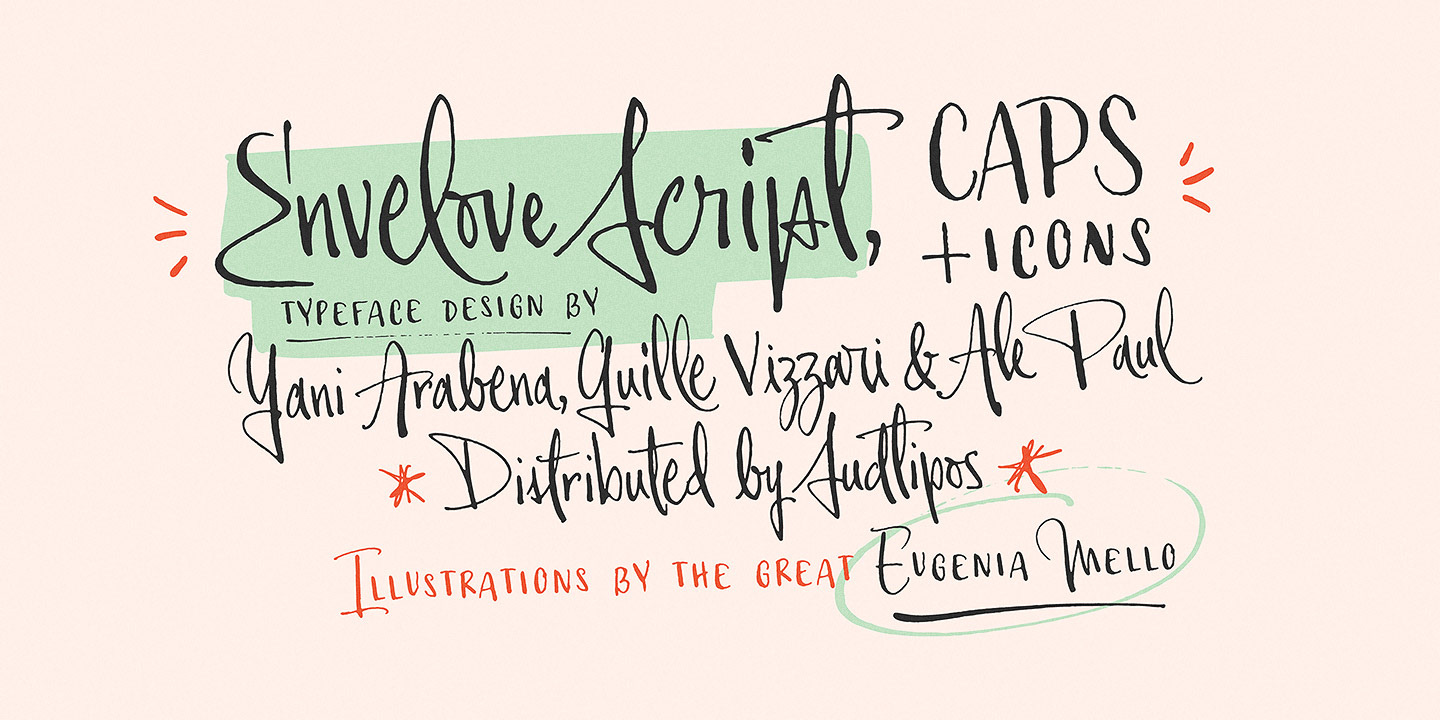 Envelove Script, CAPS
+ICONS
TYPEFACE DESIGN BY
Yani Arabena, Guille Vizzari & Ale Paul
Distributed by Sudtipos
ILLUSTRATIONS BY THE GREAT EUGENIA MELLO